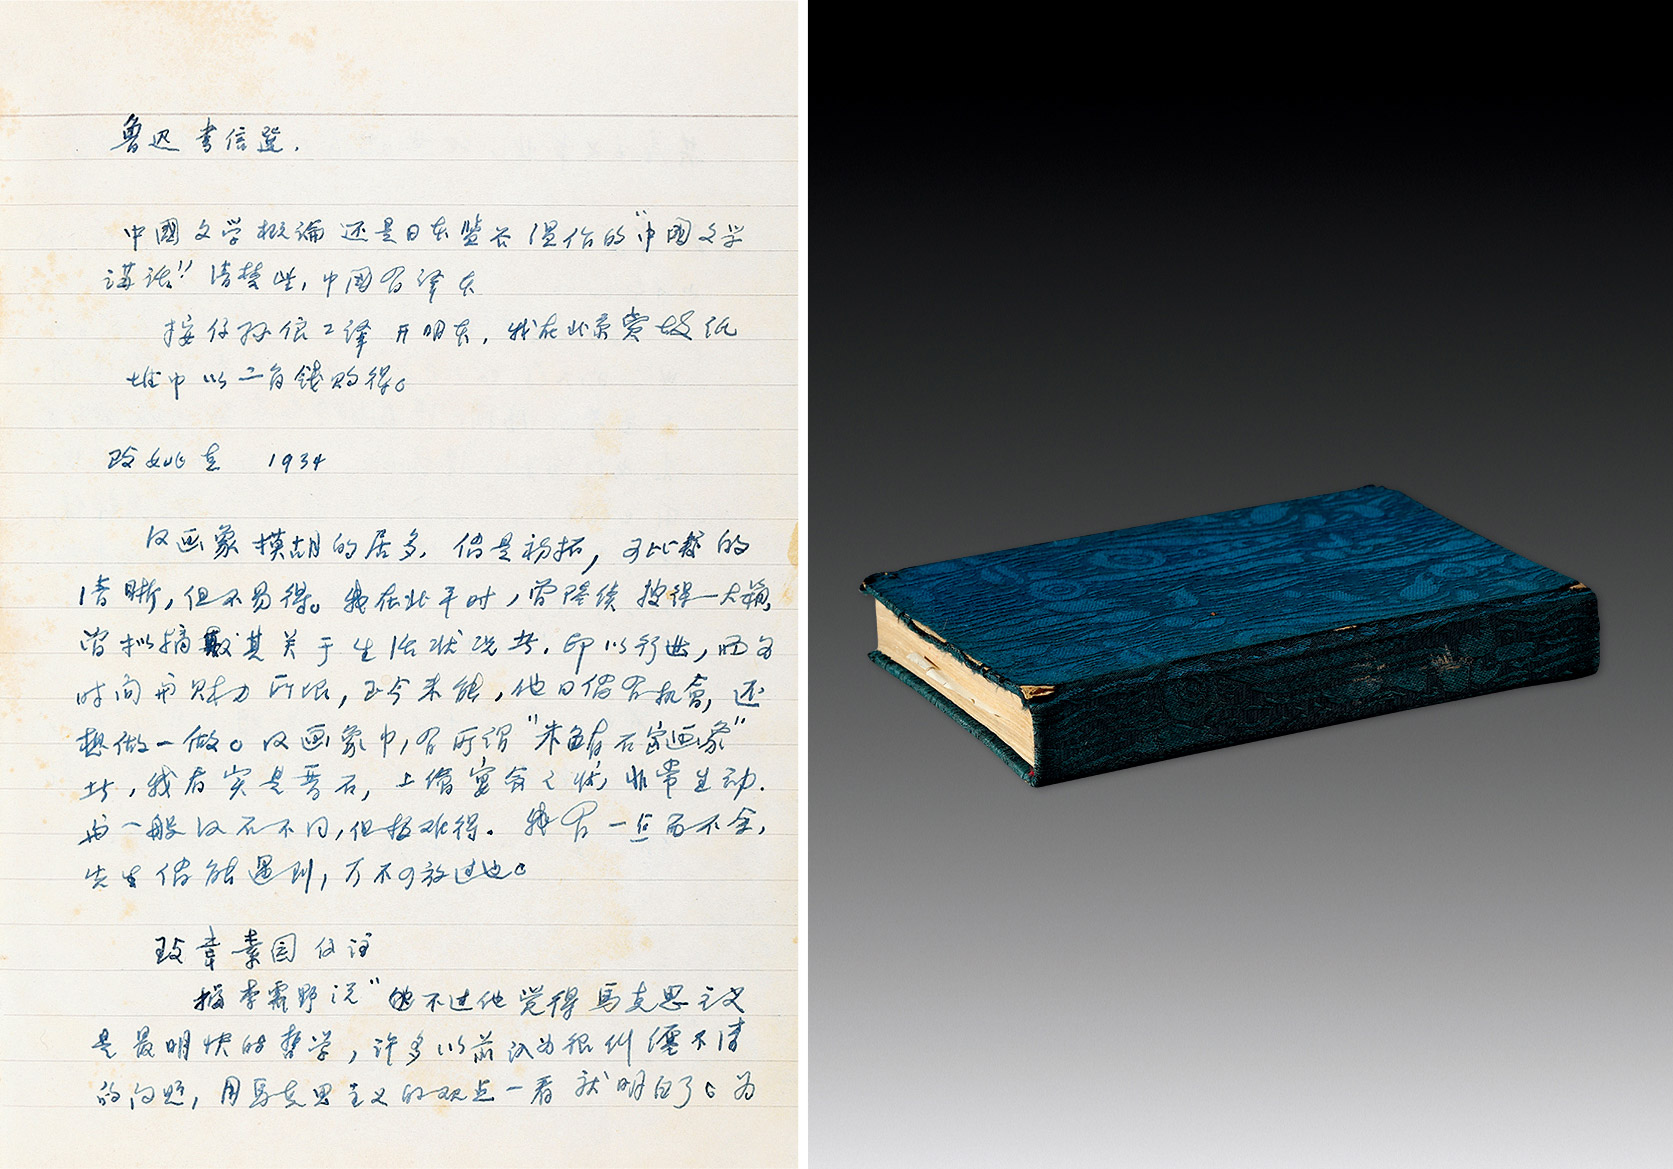 鲁迅书信选.
中國文学概論还是日本盐谷温作的"中國文学
講話"清楚些,中國有译本
按仔孙俍工譯开明本,我在北京賣故纸
堆中以二角錢购得。
致姚克 1934
汉画象模胡的居多,倘是初拓,可比較的
清晰,但不易得。我在北平时,曾陸续搜得一大箱,
曾拟摘取其关于生活状况者,印以行世,而为
时间与财力所限,至今未能,他日倘有机會,还
想做一做。汉画象中,有所谓"朱鲔石室画象"
者,我看实是晋石,上绘宴會之状,非常生动.
与一般汉石不同,但极难得.我有一点而不全,
先生倘能遇到,万不可放过也。
致韋素园 作注
據李霽野说"不过他觉得馬克思主义
是最明快的哲学,许多以前认为很纠纏不清
的问题,用馬克思主义的观点一看就明白了。为